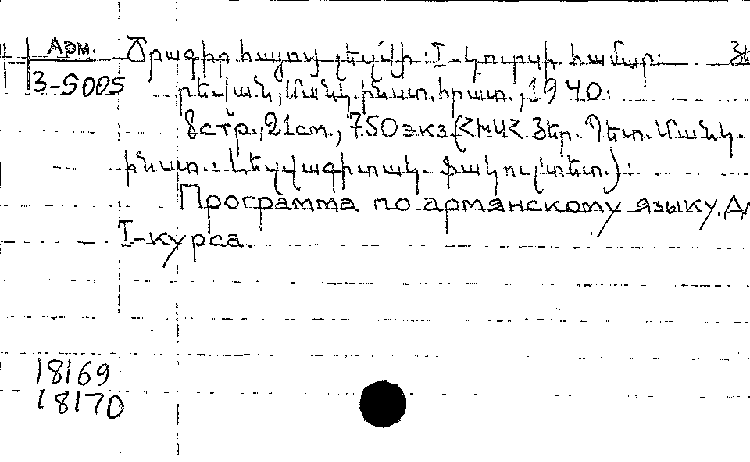 Арм. Ծրագիր հայոց լեզվի: I-կուրսի համար:
3-5005 րեվան, Մանկ. ինստ. հրատ., 1940.
8стр., 21см., 750экз. (ՀԽՍՀ Յեր. Պետ. Մանկ.
ինստ. : Լեզվագիտակ. ֆակուլտետ.):
Программа по армянскому языку. Дл
I-курса.
18169
18170